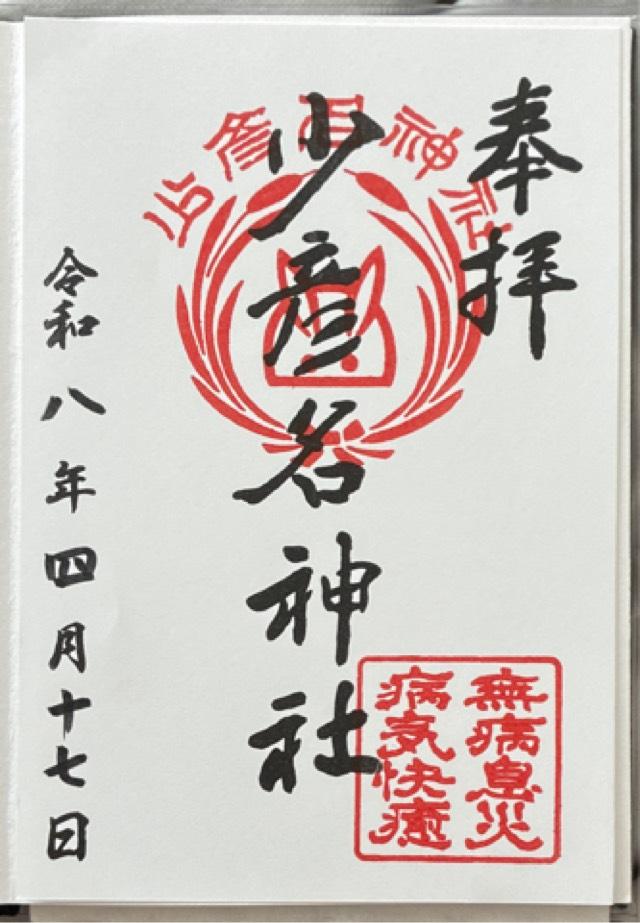 奉拝
少彦名神社
少彦名神社
無病息災
病気快癒
令和八年四月十七日